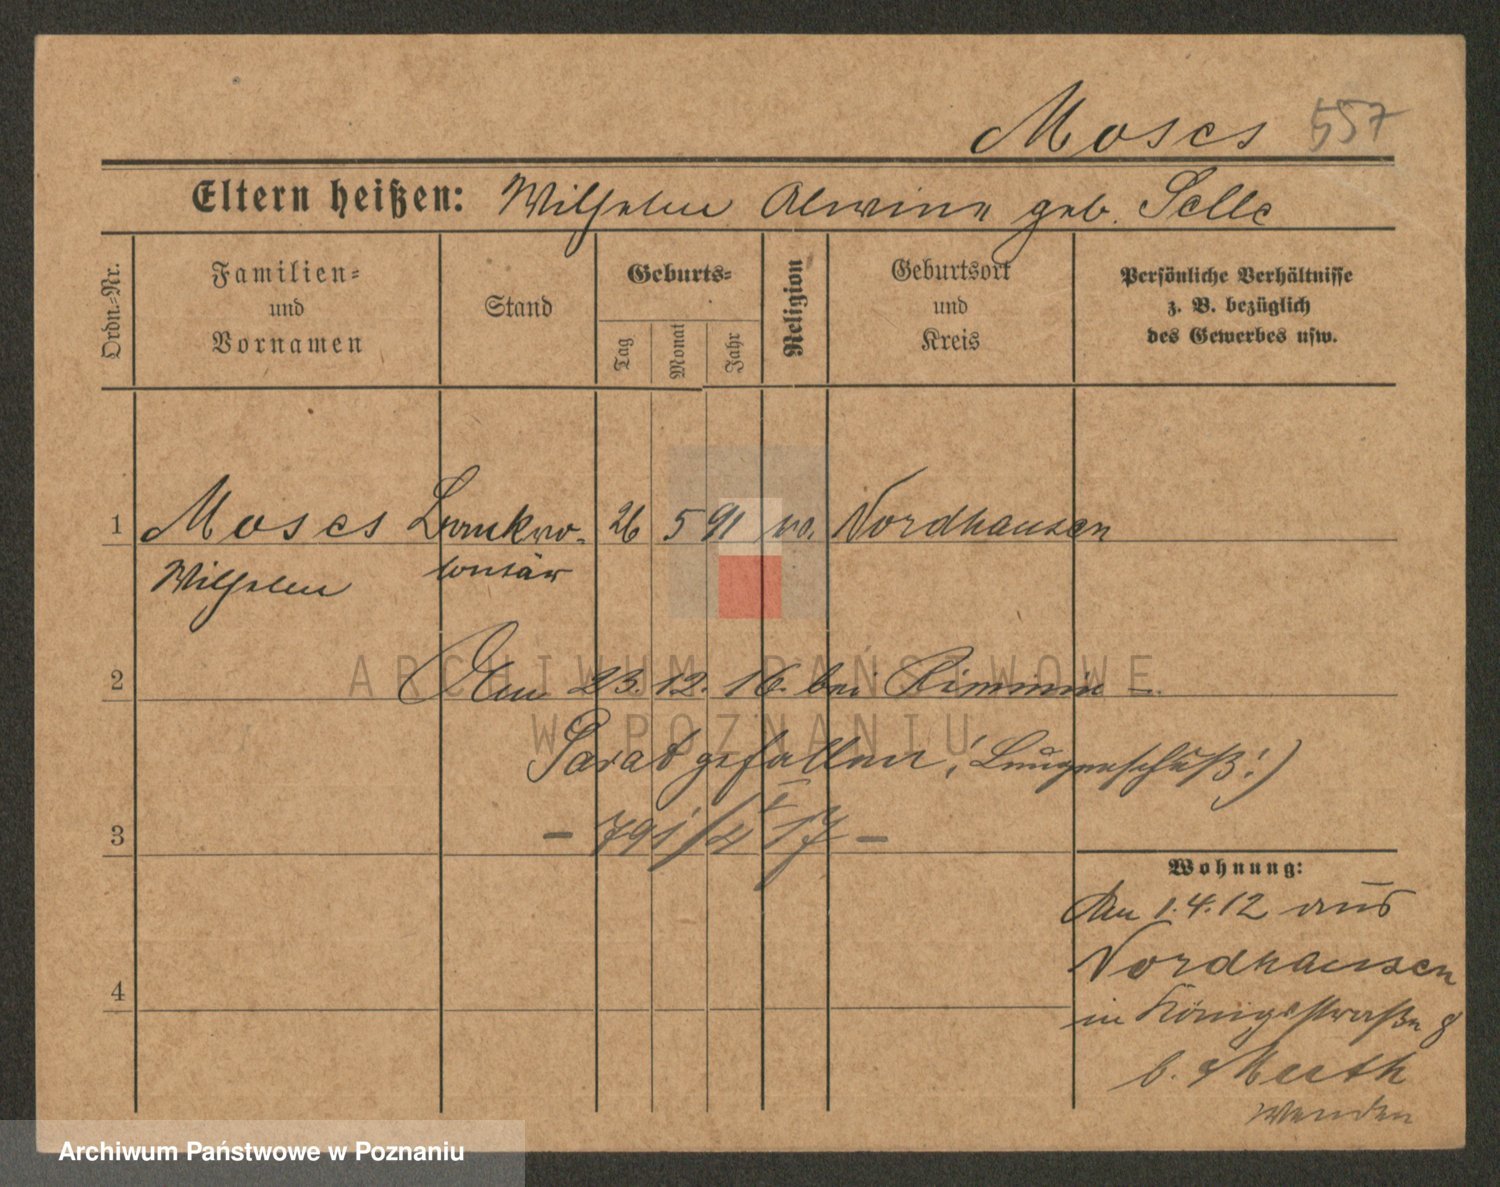 Moses 557
Eltern heißen: Wilhelm Alwine geb. Selle
Ordn.-Nr.
Familien-
und
Vornamen
Stand
Geburts-
Tag
Monat
Jahr
Religion
Geburtsort
und
Kreis
Persönliche Verhältnisse
z. B. bezüglich
des Gewerbes usw.
1 Moses Bankvo- 26 5 91 ev. Nordhausen
Wilhelm lontär
2 Am 23. 12. 16. bei Rimnic -
Sarat gefallen (Lungenschuß!)
3 - 791/2 17 -
Wohnung:
Am 1.4.12 aus
Nordhausen
4
in Königstraße 8
b.
Wenden
ARCHIWUM PAŃSTWOWE
W POZNANIU
Archiwum Państwowe w Poznaniu